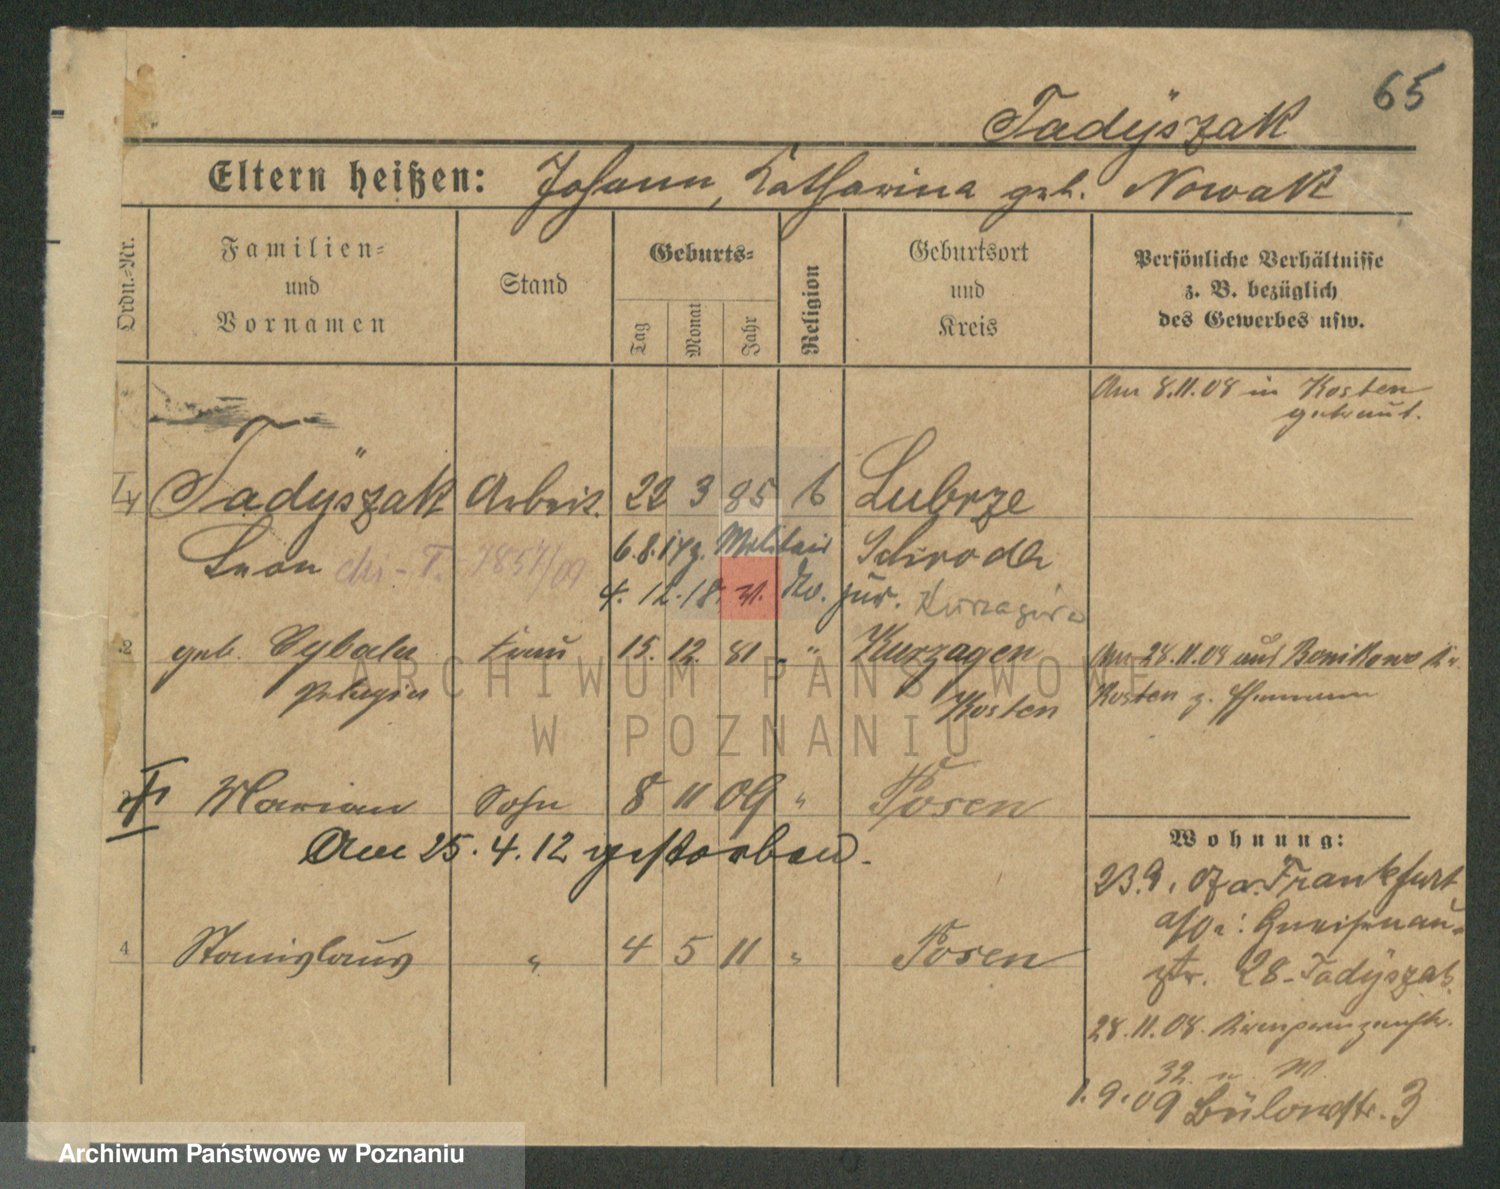 65
Tadÿszak
Eltern heißen: Johann, Katharina geb. Nowak
Ordn.-Nr.
Familien- und Vornamen
Stand
Geburts-
Tag Monat Jahr
Religion
Geburtsort und Kreis
Persönliche Verhältnisse z. B. bezüglich des Gewerbes usw.
Am 8.11.08 in Kosten
getraut.
Tadÿszak Arbeit. 22 3 85 k Lubrze
Leon 6.8.17 z. Militair Schroda
4. 12. 18. v. zur.
2 geb. Cybala Frau 15. 12. 81 " " Kurzagen
Pelagia Kosten
Am 28.11.08 aus Bonikowo Kr.
Kosten z. Ehemann
Marian Sohn 8 11 09 " Posen
Am 25. 4. 12 gestorben.
4 Stanislaus " 4 5 11 " Posen
Wohnung:
23.9. 07 a. Frankfurt
a/O.: Gneisenau-
str. 28 - Tadÿszak.
28.11.08. Kronprinzenstr.
32
1.9.09 Bülowstr. 3
ARCHIWUM PAŃSTWOWE
W POZNANIU
Archiwum Państwowe w Poznaniu